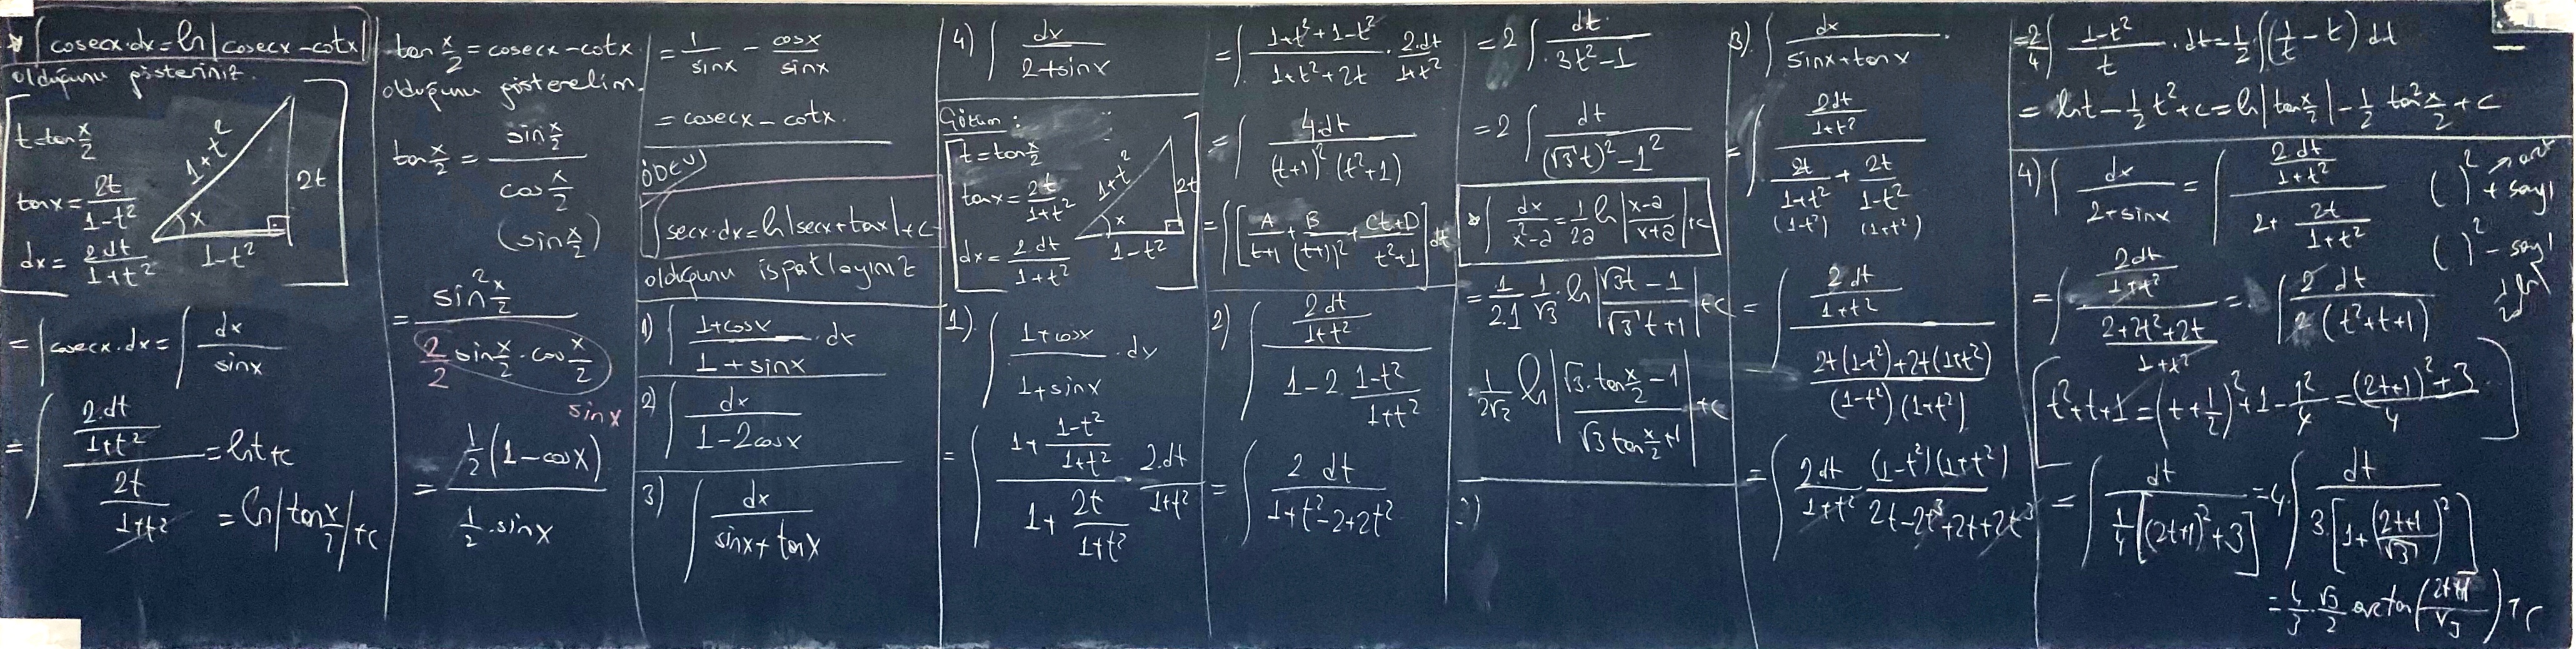 * ∫ cosecx.dx = ln|cosecx - cotx|
olduğunu gösteriniz.
t = tan x/2
tanx = 2t/(1-t²)
dx = 2dt/(1+t²)
1+t²
2t
x
1-t²
= ∫ cosecx.dx = ∫ dx/sinx
= ∫ (2.dt/(1+t²))/(2t/(1+t²)) = lnt+c
= ln|tan x/2| +c
tan x/2 = cosecx - cotx
olduğunu gösterelim.
tan x/2 = (sin x/2)/(cos x/2)
(sin x/2)
= (sin² x/2)/(2/2 sin x/2 . cos x/2)
sinx
= (1/2 (1-cosx))/(1/2 . sinx)
= 1/sinx - cosx/sinx
= cosecx - cotx.
ÖDEV
∫ secx.dx = ln|secx+tax|+c
olduğunu ispatlayınız
1) ∫ (1+cosx)/(1+sinx) . dx
2) ∫ dx/(1-2cosx)
3) ∫ dx/(sinx+tanx)
4) ∫ dx/(2+sinx)
Çözüm:
t = tan x/2
tanx = 2t/(1+t²)
dx = 2.dt/(1+t²)
1+t²
2t
x
1-t²
1) ∫ (1+cosx)/(1+sinx) . dx
= ∫ (1+(1-t²)/(1+t²))/(1+2t/(1+t²)) . 2.dt/(1+t²)
= ∫ (1+t²+1-t²)/(1+t²+2t) . 2.dt/(1+t²)
= ∫ 4.dt/((t+1)²(t²+1))
= ∫ [A/(t+1) + B/(t+1)² + (Ct+D)/(t²+1)] dt
2) ∫ (2dt/(1+t²))/(1-2.(1-t²)/(1+t²))
= ∫ 2 dt/(1+t²-2+2t²)
= 2 ∫ dt/(3t²-1)
= 2 ∫ dt/((√3t)²-1²)
* ∫ dx/(x²-a) = 1/2a ln|(x-a)/(x+a)|+c
= 1/2.1 1/√3 . ln|(√3t-1)/(√3t+1)|+c
1/2√2 ln|(√3.tan x/2 -1)/(√3tan x/2 +1)|+c
3) ∫ dx/(sinx+tanx)
= ∫ (2dt/(1+t²))/(2t/(1+t²) + 2t/(1-t²))
(1-t²) (1+t²)
= ∫ (2dt/(1+t²))/((2t(1-t²)+2t(1+t²))/((1-t²)(1+t²)))
= ∫ 2.dt/(1+t²) (1-t²)(1+t²)/(2t-2t³+2t+2t³)
= 2/4 ∫ (1-t²)/t . dt = 1/2 ∫ (1/t - t) dt
= lnt - 1/2 t² + c = ln|tan x/2| - 1/2 tan² x/2 + c
4) ∫ dx/(2+sinx) = ∫ (2dt/(1+t²))/(2+2t/(1+t²))
( )² + sayı
( )² - sayı
= ∫ (2dt/(1+t²))/((2+2t²+2t)/(1+t²)) = ∫ 2 dt/(2(t²+t+1))
t²+t+1 = (t+1/2)²+1-1²/4 = ((2t+1)²+3)/4
= ∫ dt/(1/4[(2t+1)²+3]) = 4.∫ dt/(3.[1+((2t+1)/√3)²])
= 4/3 . √3/2 arctan((2t+1)/√3)+c